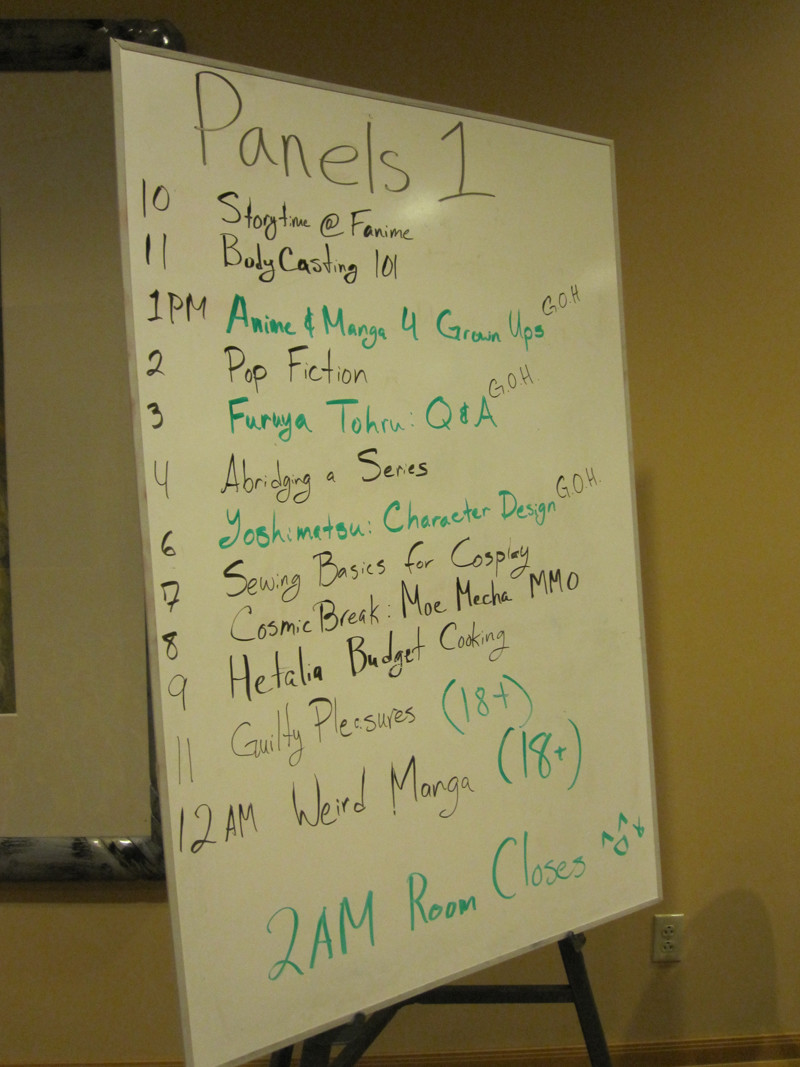 Panels 1
10 Storytime @ Fanime
11 BodyCasting 101
1PM Anime & Manga 4 Grown Ups G.O.H
2 Pop Fiction
3 Furuya Tohru: Q&A G.O.H.
4 Abridging a Series
6 Yoshimatsu: Character Design G.O.H.
7 Sewing Basics for Cosplay
8 CosmicBreak: Moe Mecha MMO
9 Hetalia Budget Cooking
11 Guilty Pleasures (18+)
12AM Weird Manga (18+)
2AM Room Closes